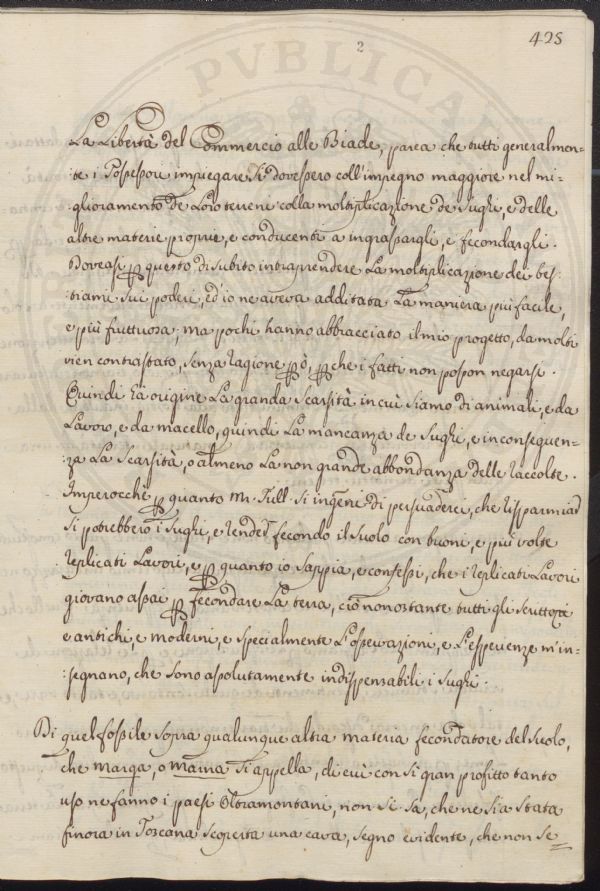 425
2
PVBLICAE
La Libertà del Commercio alle Biade, parea che tutti generalmen-
te i Possessori impiegare si dovessero coll'impegno maggiore nel mi-
:glioramento de Loro terreni colla moltiplicazione de Sughi, e delle
altre materie proprie, e conducenti a ingrassargli, e fecondargli.
Doveasi p questo di subito intraprendere La moltiplicazione dei bes:
tiami sui poderi, ed io ne aveva additata La maniera più facile,
e più fruttuosa; ma pochi hanno abbracciato il mio progetto, da molti
vien contrastato, senza ragione pò, pche i fatti non posson negarsi.
Quindi hà origine La granda Scarsità in cui siamo di animali, e da
Lavoro, e da macello, quindi La mancanza de Sughi, e in conseguen-
:za La Scarsità, o almeno La non grande abbondanza delle raccolte.
Imperocchè p quanto M. Tull si ingegni di persuaderci, che risparmiar
si potrebbero i Sughi, e render fecondo il suolo con buoni, e più volte
replicati Lavori, e p quanto io sappia, e confessi, che i replicati Lavori
giovano assai p fecondare La terra, ciò nonostante tutti gli scrittori
e antichi, e moderni, e specialmente L'osservazioni, e L'esperienze m'in-
:segnano, che sono assolutamente indispensabili i Sughi.
Di quel fossile sopra qualunque altra materia fecondatore del suolo,
che Marga, o Marna si appella, di cui con sì gran profitto tanto
uso ne fanno i paesi Oltramontani, non si sa, che ne sia stata
finora in Toscana scoperta una cava, segno evidente, che non se=